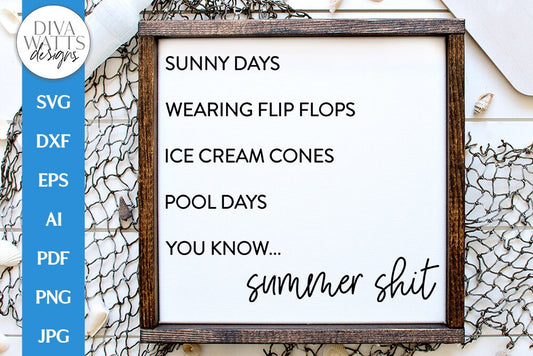 DIVA
WATTS
designs
SVG
DXF
EPS
AI
PDF
PNG
JPG
SUNNY DAYS
WEARING FLIP FLOPS
ICE CREAM CONES
POOL DAYS
YOU KNOW...
summer shit